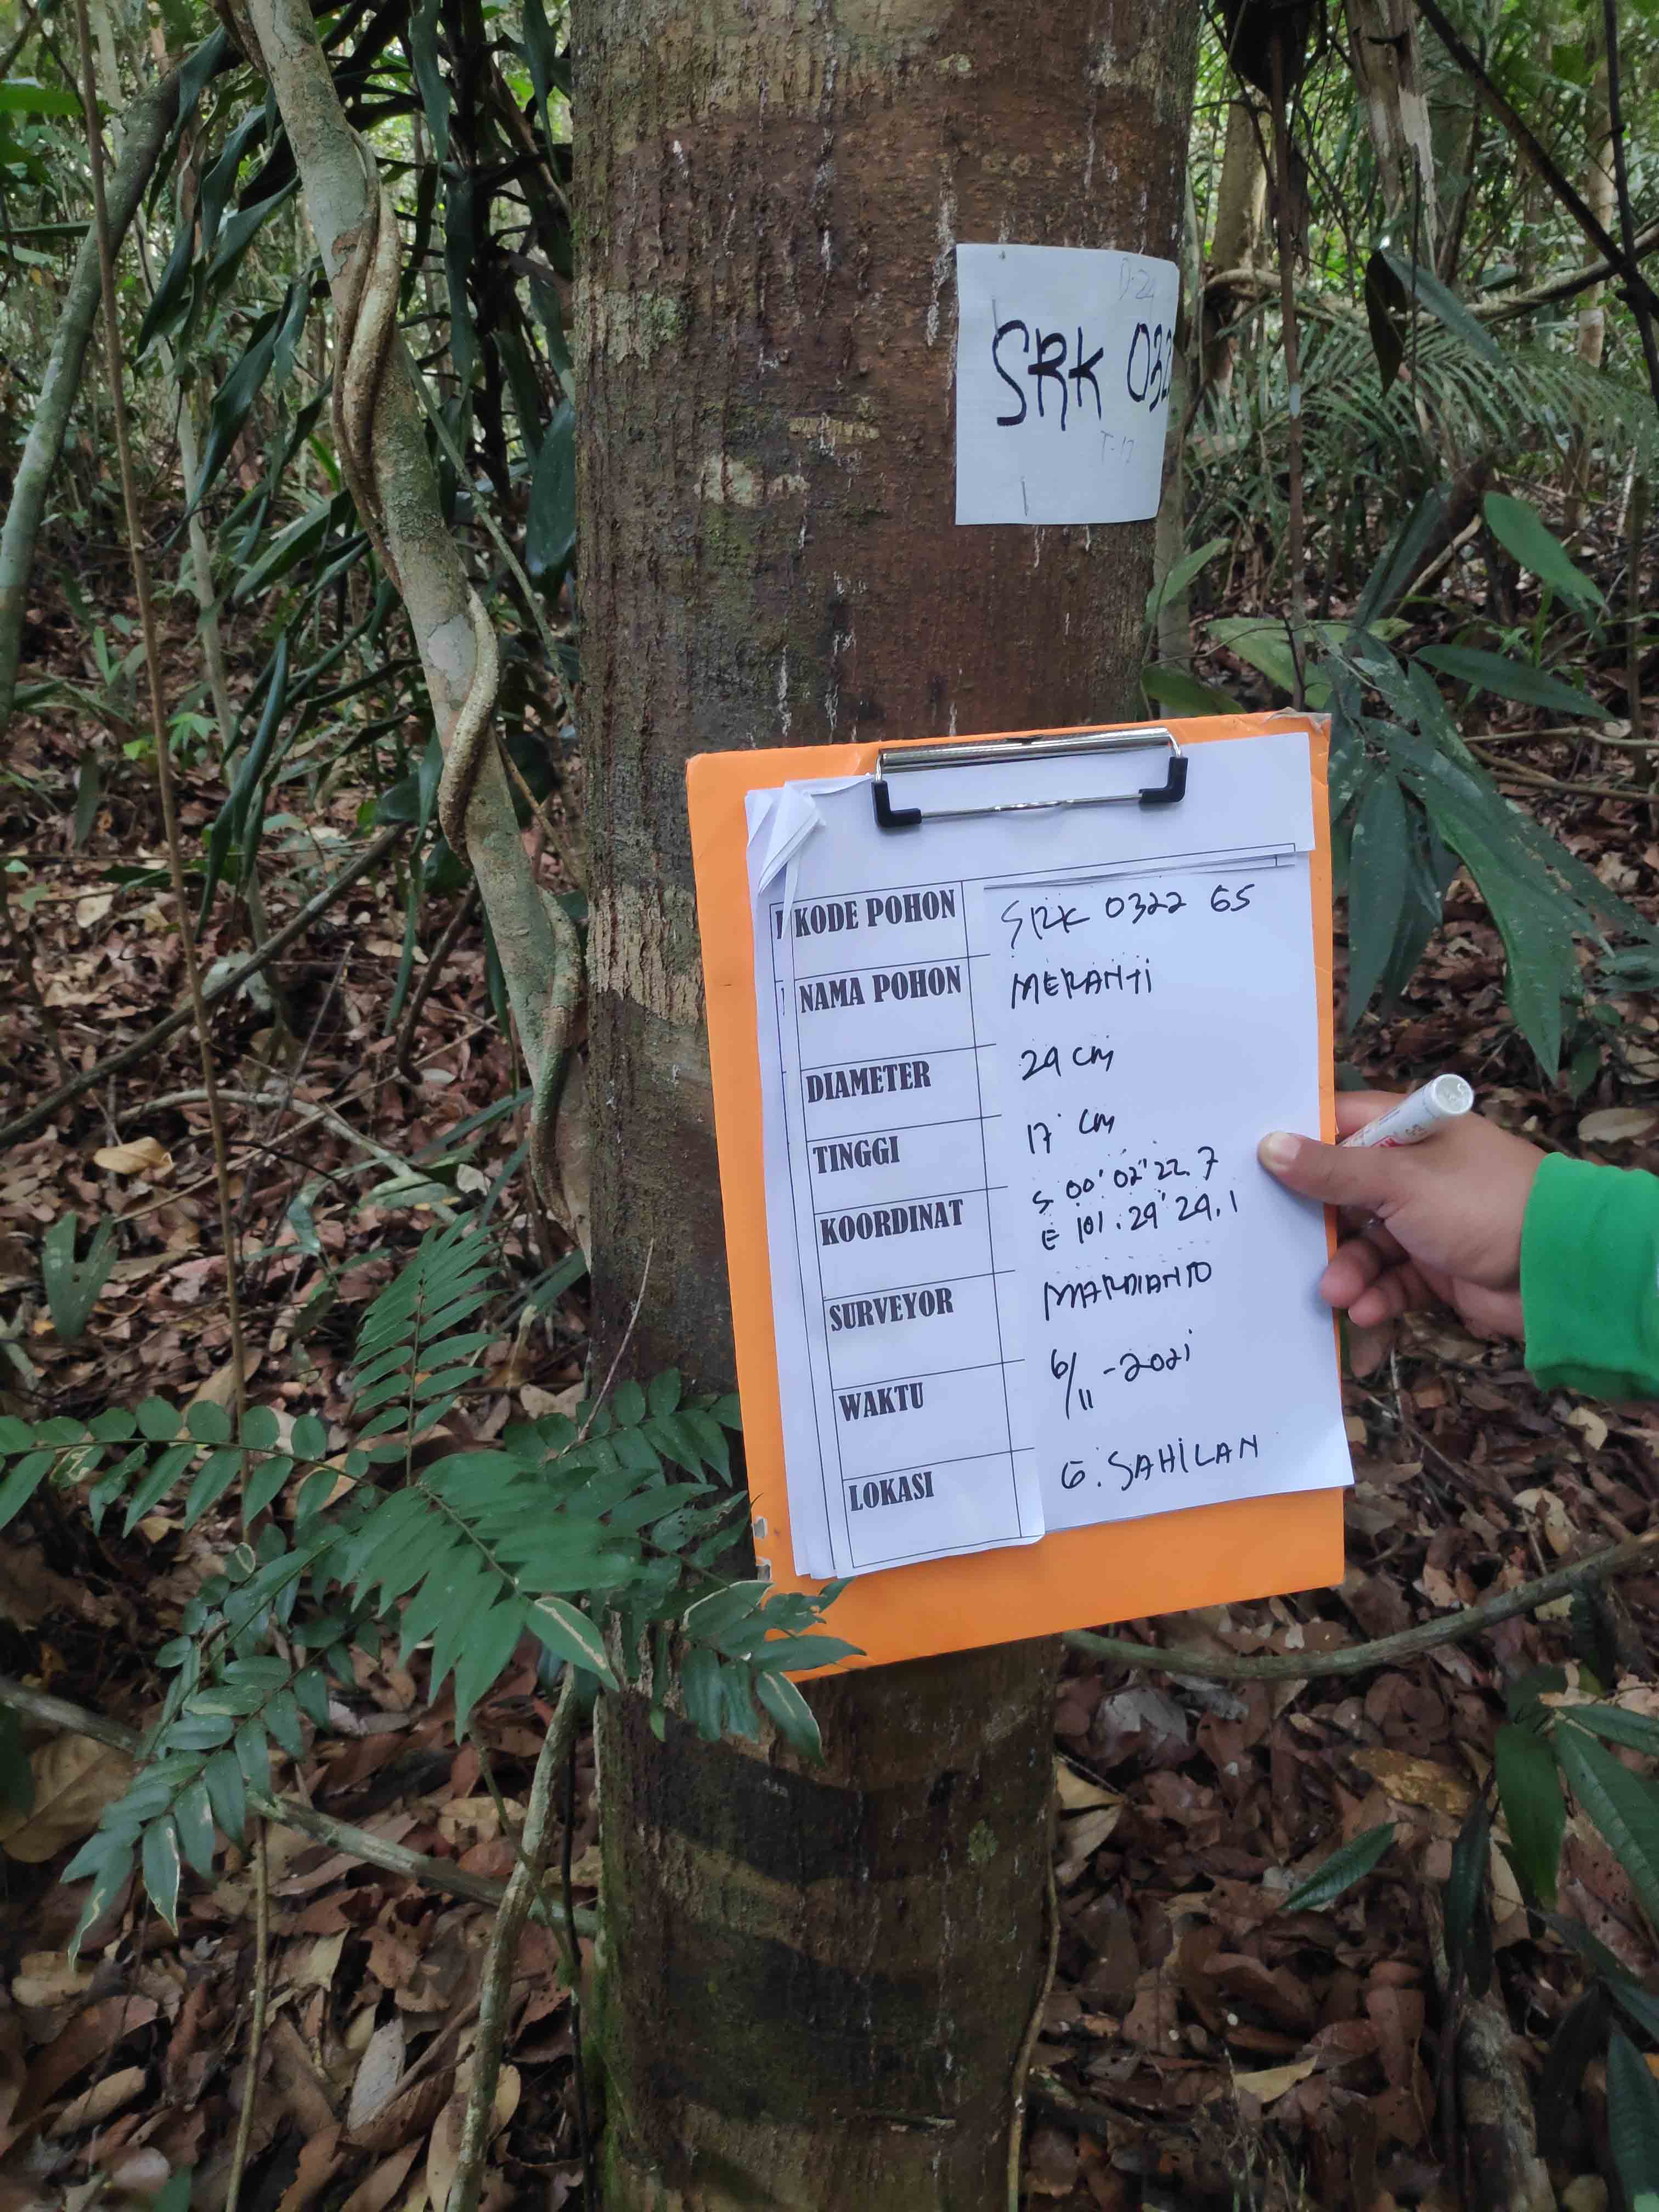 D-24
SRK 032
T-17
KODE POHON SRK 0322 65
NAMA POHON MERANTI
DIAMETER 24 cm
TINGGI 17 cm
KOORDINAT S 00' 02" 22.7
E 101. 29' 29.1
SURVEYOR MARDIANTO
WAKTU 6/11 - 2021
LOKASI G. SAHILAN